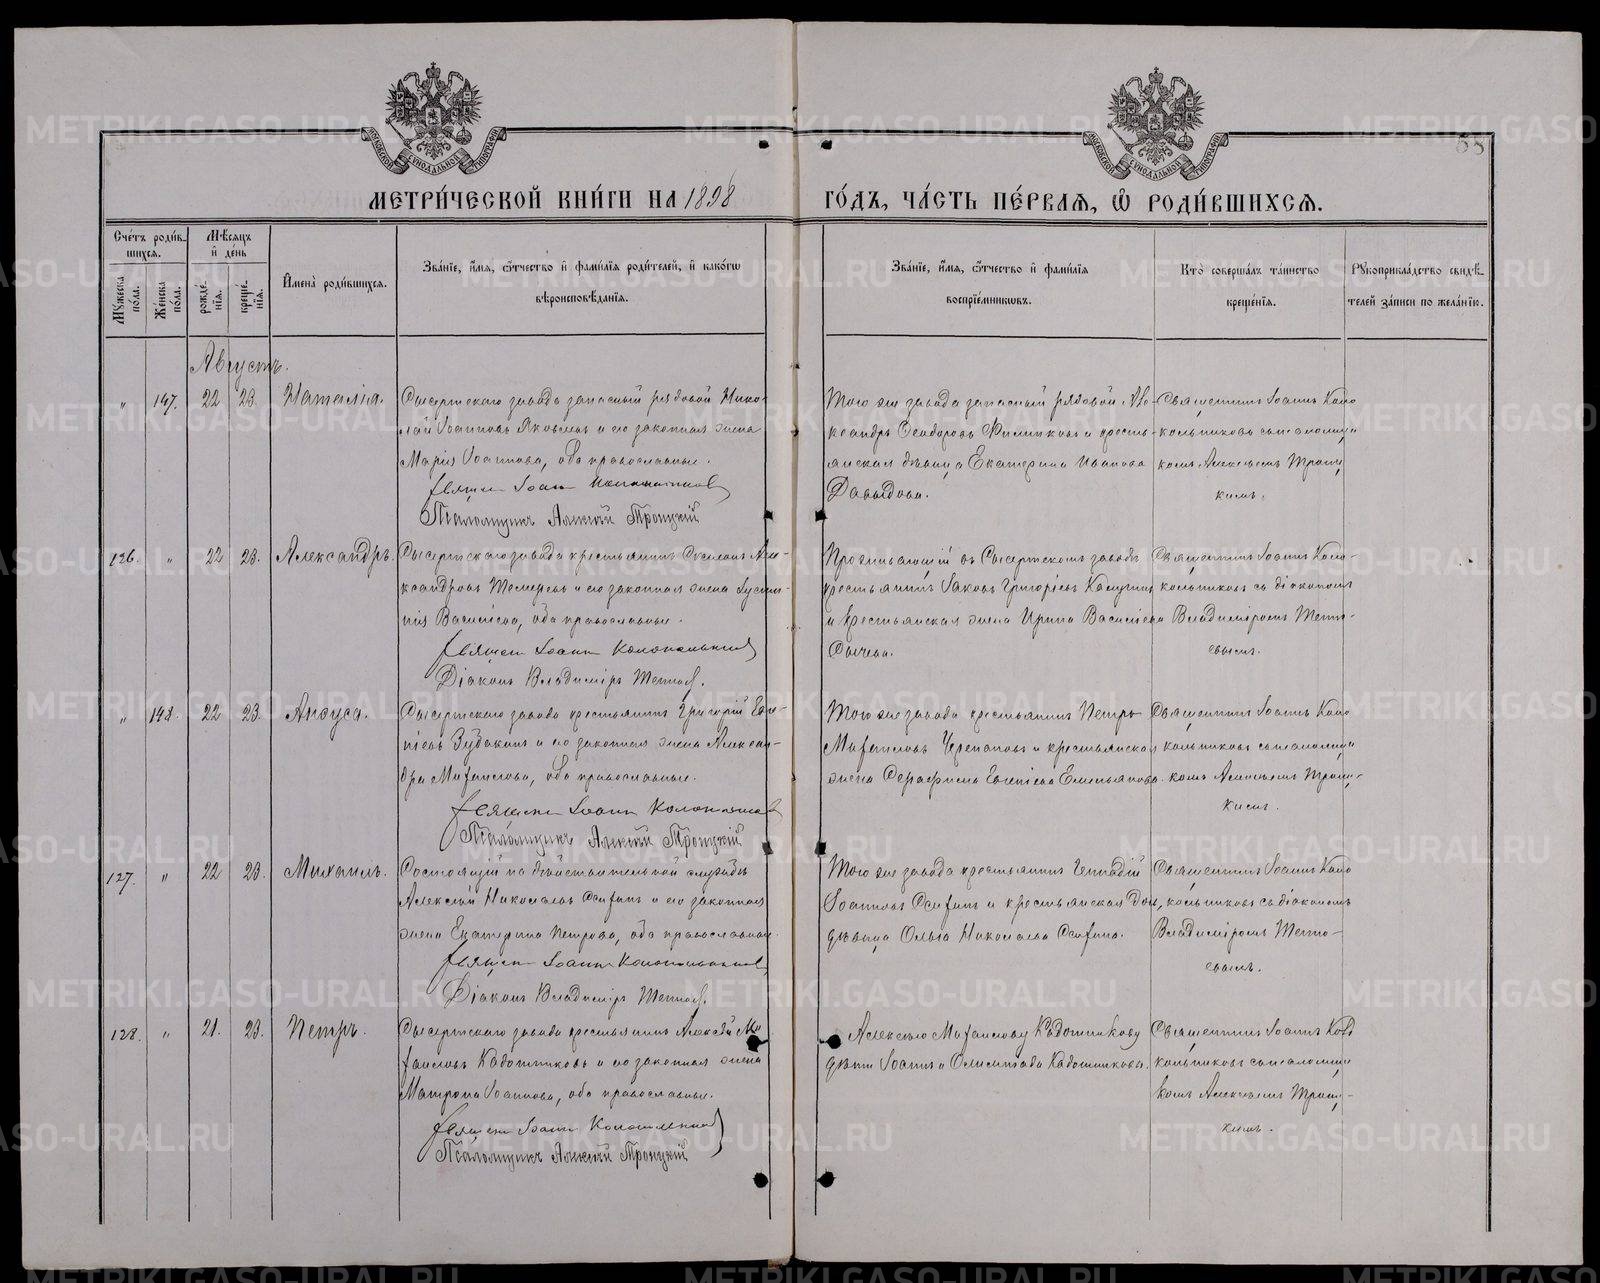 МЕТРИ́ЧЕСКОЙ КНИ́ГИ НА 1898 ГО́ДЪ, ЧА́СТЬ ПЕ́РВАѦ, Ѽ РОДИ́ВШИХСѦ.
Сче́тъ роди́в-
шихся.
Мѣ́сяцъ
и҆ де́нь
Мꙋжеска по́ла.
Же́нска по́ла.
рожде́-нїя.
креще́-нїя.
И҆мена̀ роди́вшихся.
Зва́нїе, и҆́мя, ѻ҆́тчество и҆ фами́лїя роди́телей, и҆ како́гѡ
вѣроисповѣ́данїя.
Зва́нїе, и҆́мя, ѻ҆́тчество и҆ фами́лїя
воспрїе́мникѡвъ.
Кто̀ соверша́лъ та́инство
креще́нїя.
Рꙋкоприкла́дство свидѣ́-
телей за́писи по жела́нїю.
Августъ.
" 147. 22 23. Наталія. Сысертскаго завода запасный рядовой Нико-
лай Іоанновъ Яковлевъ и его законная жена
Марія Іоаннова, оба православные.
Священ Іоанн Колокольников
Псаломщикъ Алексѣй Троицкій
Того же завода запасный рядовой Але-
ксандръ Ѳеодоровъ и кресть-
янская дѣвица Екатерина Иванова
Давыдова.
Священникъ Іоаннъ Коло
кольниковъ съ псаломщи
комъ Алексѣемъ Троиц
кимъ.
126. " 22 23. Александръ. Сысертскаго завода крестьянинъ Але-
ксандровъ и его законная жена Іусти-
нія Васильева, оба православные.
Священ Іоанн Колокольников
Діаконъ Владиміръ
Проживающій въ Сысертскомъ заводѣ
крестьянинъ Іаковъ Григорьевъ
и крестьянская жена Ирина Васильева
Сысева.
Священникъ Іоаннъ Коло-
кольниковъ съ діакономъ
Владиміромъ Тетю-
евымъ.
" 148. 22 23. Анѳуса. Сысертскаго завода крестьянинъ Григорій Евге-
ніевъ Зубакинъ и его законная жена Алексан-
дра Михаилова, оба православные.
Священ Іоанн Колокольников
Псаломщикъ Алексѣй Троицкій
Того же завода крестьянинъ Петръ
Михаиловъ Черепановъ и крестьянская
жена Серафима Евгеніева Емельянова.
Священникъ Іоаннъ Коло
кольниковъ съ псаломщи
комъ Алексѣемъ Троиц-
кимъ.
127. " 22 23. Михаилъ. Состоящій на дѣйствительной службѣ
Алексѣй Николаевъ и его законная
жена Екатерина Петрова, оба православные.
Священ Іоанн Колокольников
Діаконъ Владиміръ
Того же завода крестьянинъ Геннадій
Іоанновъ и крестьянская дочь,
дѣвица Ольга Николаева
Священникъ Іоаннъ Коло
кольниковъ съ діакономъ
Владиміромъ Тетю-
евымъ.
128. " 21. 23. Петръ. Сысертскаго завода крестьянинъ Алексѣй Ми
хаиловъ Кадошниковъ и его законная жена
Матрона Іоаннова, оба православные.
Священ Іоанн Колокольников
Псаломщикъ Алексѣй Троицкій
Алексѣю Михаилову Кадошникову
дѣти Іоаннъ и Олимпіада Кадошниковы.
Священникъ Іоаннъ Коло
кольниковъ съ псаломщи
комъ Алексѣемъ Троиц-
кимъ.
METRIKI.GASO-URAL.RU